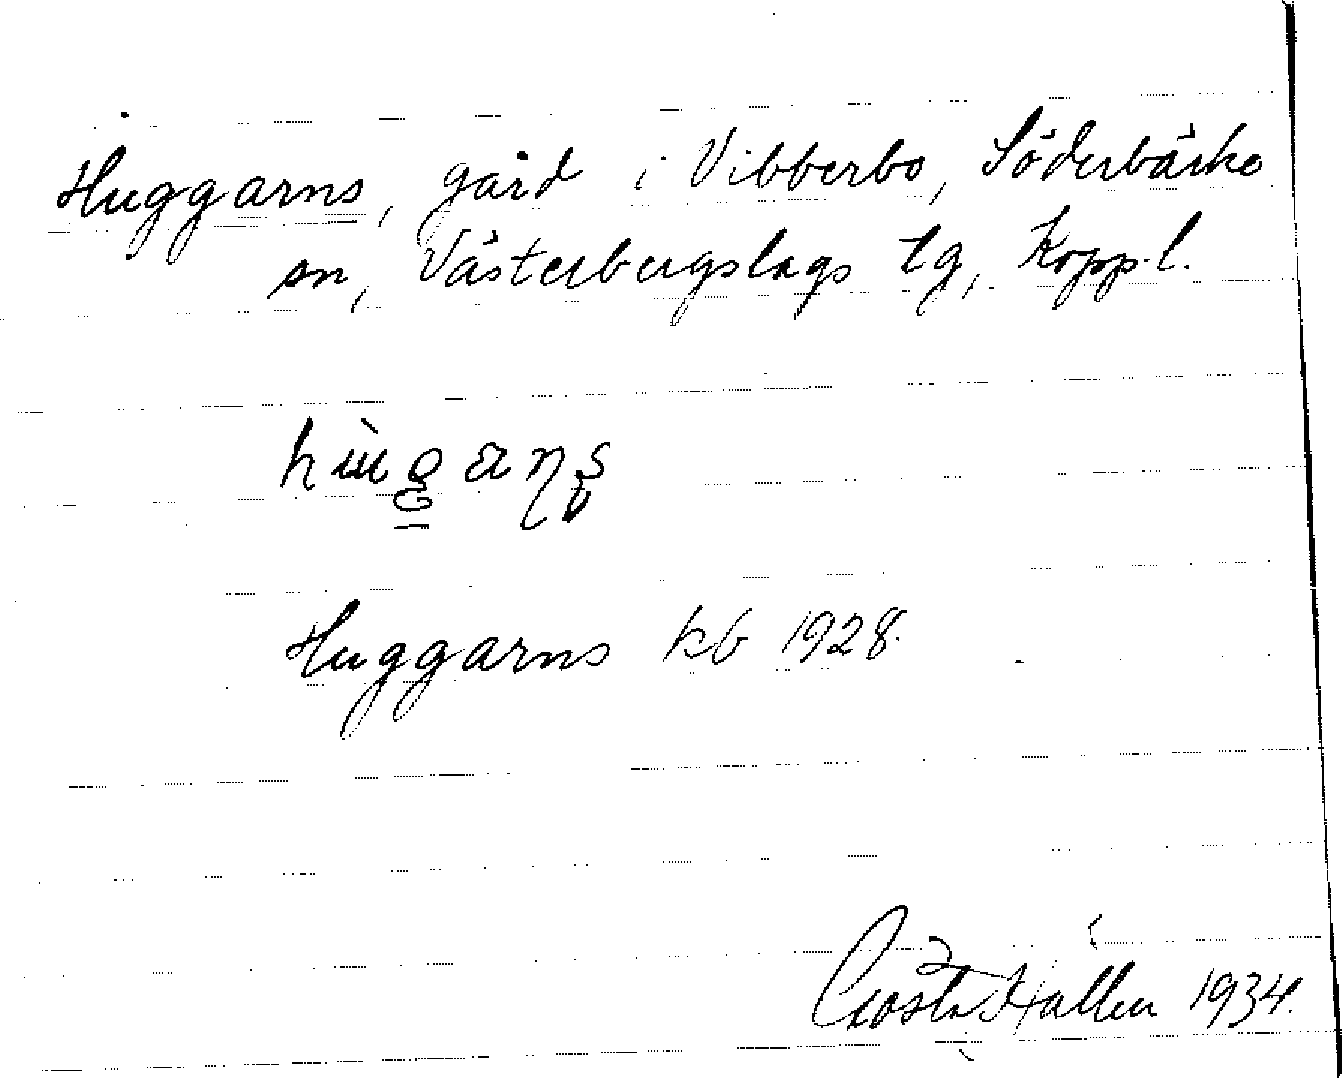 Huggarns, gård i Vibberbo, Söderbärke
sn, Västerbergslags tg, Kopp.l.
Huggarns kb 1928.
Gösta Hallén 1934.